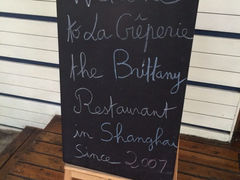 Welcome
to La Crêperie
the Brittany
Restaurant
in Shanghai
Since 2007